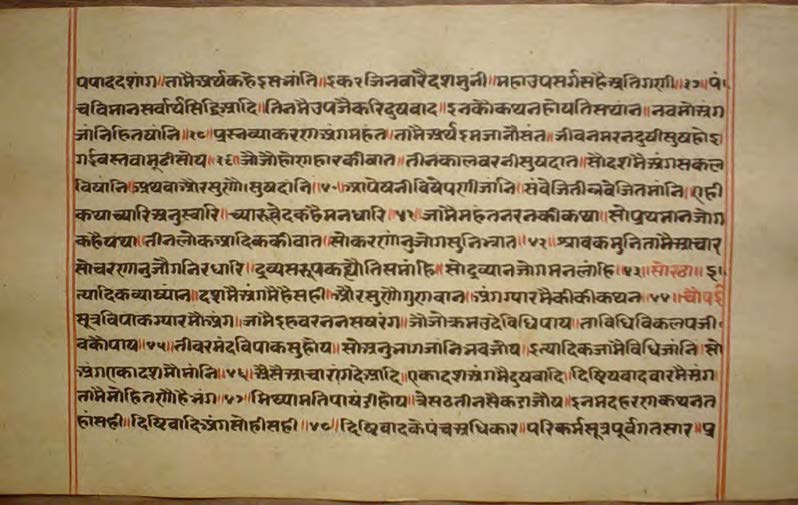 पपाददशांग॥तामैअर्थकहेइसभांति॥इकरजिनबारैदशमुनी॥महाउपसर्गसहैअतिगणी॥३७॥पं
चविमानसर्वार्थसिद्धिआदि॥तिनमैउपजैकरिदुषवाद॥इनकौकथनहोयतिसथान॥नवमोअंग
जांनिहितथांनि॥३८॥प्रस्नव्याकरणअंगमहत॥तामैअर्थइमजानौसंत॥जीवनमरनदुषीसुषहोइ॥
गईबस्तवामूठीसोय॥३९॥जौजौहोणहारकीबात॥तीनकालबरनीसुषदात॥सोदशमैअंगसकल
विषांनि॥अथवाऔरसुणौ।सुषदांनि॥४०॥आषेपनीविषेपणीजांनि॥संवेजितीनवेजितमांनि॥एही
कथाच्यारिअनुस्वारि॥च्यारूवेदकहैमनधारि॥४१॥जांमैमहंतनरनकीकथा॥सोप्रथमानजोग
कहैयथा॥तीनलोकआदिककीवात॥सोकरणांनुजोगसुनिभ्रात॥४२॥श्रावकमुनितामैआचार
सोचरणांनुजौगनिरधारि॥दुव्यसरूपकह्यौतिसमांहि॥सोदुव्यानजोगमनलांहि॥४३॥सोरठा॥इ
त्यादिकव्याष्यांन॥दशमैअंगमैहैसही॥औरसुणौगुणवान॥अंगग्यारमैकीकथन॥४४॥चौपई
सूत्रविपाकग्यारमौअंग॥जांमैइहवरननसषरंग॥जौजोक्रमउदैविधिपाय॥ताविधिविकलपजी
वकौपाय॥४५॥तीवरमंदविपाकसुहोय॥सोअनुभागजांनिभवजोय॥इत्यादिकजांमैविधिजांनि॥सो
अंगएकादशमौमांनि॥४६॥अैसैआचारांगदेआदि॥एकादशअंगमैदुषवादि॥दिष्टिवादवारमैअंग
तामैमोहितणौहैभंग॥४७॥मिथ्यामतिपाषंडीहोय॥त्रेसठतीनसैकडाजौय॥इनमदहरणकथनत
हांसही॥दिष्टिवादिअंगसोहीसही॥४८॥द्रिष्टिवादकेपंचअधिकार॥परिकर्मसूत्रपूर्वगतसार॥प्र